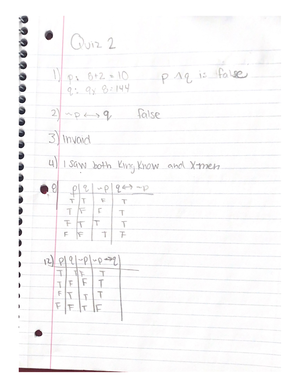 Quiz 2
1) p: 8+2=10 p ∧ q is false
q: 9x8=144
2) ~p ↔ q False
3) Invalid
4) I saw both King Know and X-men
8 p | q | ~p | q ↔ ~p
T T F T
T F F T
F T T T
F F T F
12) p | q | ~p | ~p → q
T T F T
T F F T
F T T T
F F T F